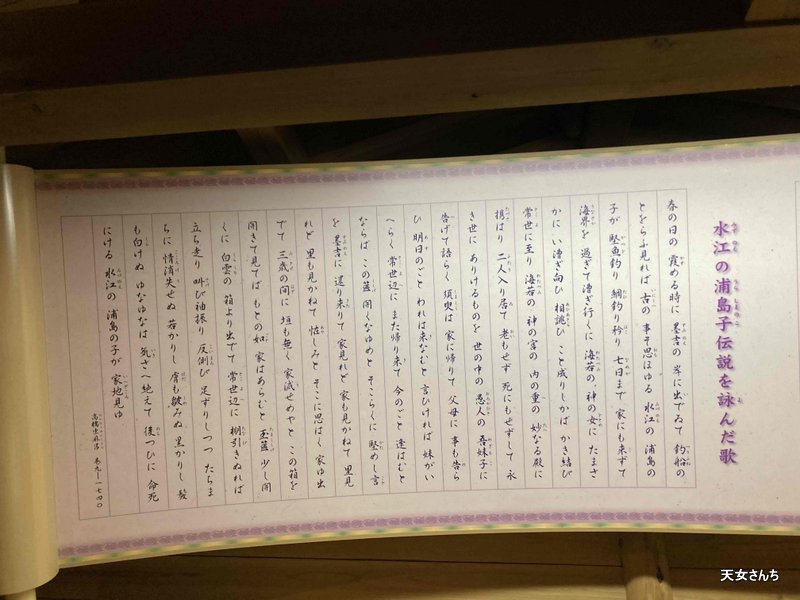 水江の浦島子伝説を詠んだ歌
春の日の 霞める時に 墨吉の 岸に出でゐて 釣船の
とをらふ見れば 古の 事そ思ほゆる 水江の 浦島の
子が 堅魚釣り 鯛釣り矜り 七日まで 家にも来ずて
海界を 過ぎて漕ぎ行くに 海若の 神の女に たまさ
かに い漕ぎ向ひ 相誂ひ こと成りしかば かき結び
常世に至り 海若の 神の宮の 内の重の 妙なる殿に
携はり 二人入り居て 老もせず 死にもせずして 永
き世に ありけるものを 世の中の 愚人の 吾妹子に
告げて語らく 須臾は 家に帰りて 父母に 事も告ら
ひ 明日のごと われは来なむと 言ひければ 妹がい
へらく 常世辺に また帰り来て 今のごと 逢はむと
ならば この篋 開くなゆめと そこらくに 堅めし言
を 墨吉に 還り来りて 家見れど 家も見かねて 里見
れど 里も見かねて 恠しみと そこに思はく 家ゆ出
でて 三歳の間に 垣も無く 家滅せめやと この箱を
開きて見てば もとの如 家はあらむと 玉篋 少し開
くに 白雲の 箱より出でて 常世辺に 棚引きぬれば
立ち走り 叫び袖振り 反側び 足ずりしつつ たちま
ちに 情消失せぬ 若かりし 膚も皺みぬ 黒かりし 髪
も白けぬ ゆなゆなは 気さへ絶えて 後つひに 命死
にける 水江の 浦島の子が 家地見ゆ
高橋虫麻呂 巻九―一七四〇
天女さんち